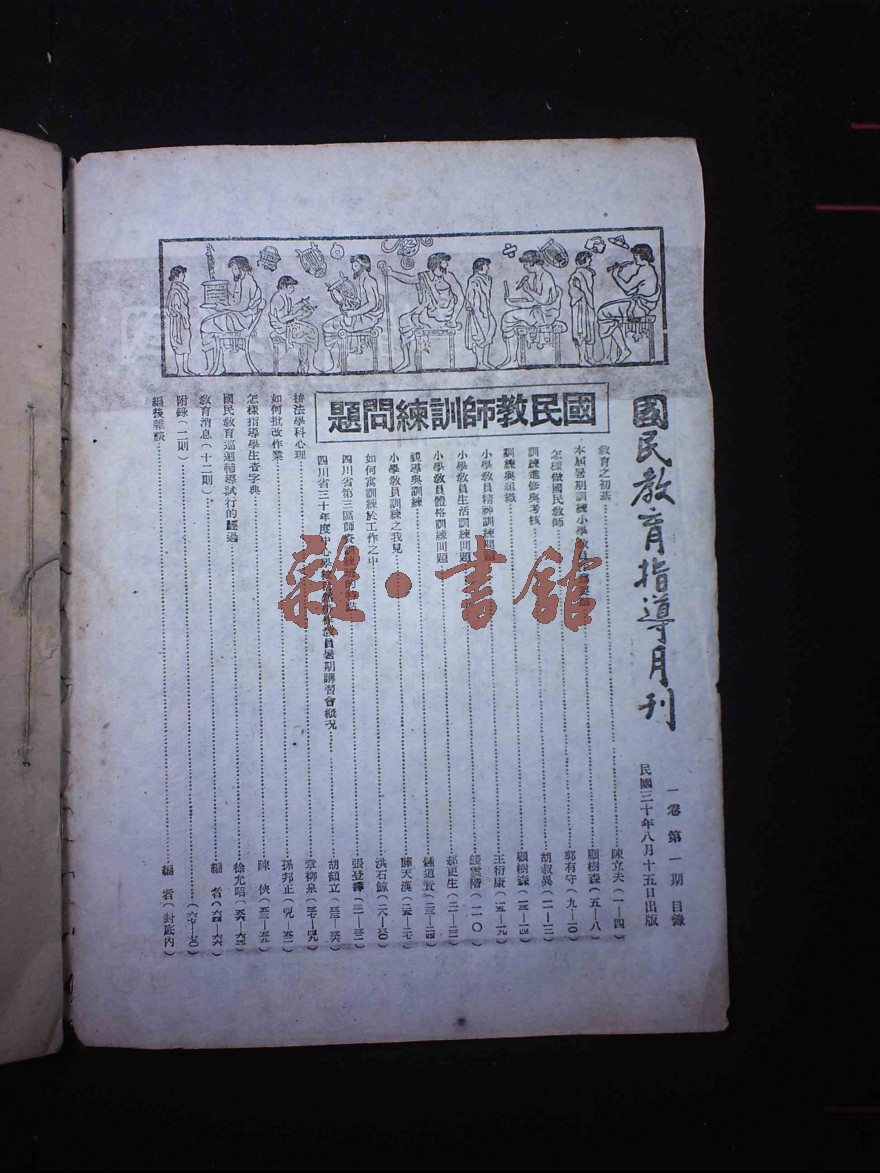 國民教育指導月刊
一卷 第一期 目錄
民國三十年八月十五日出版
國民教師訓練問題
教育之初基……陳立夫(一—四)
本屆暑期訓練小學教……顧樹森(五—八)
怎樣做國民教師……郭有守(九—一〇)
訓練進修與考核……胡叔異(一一—一二)
訓練與組織……顧樹森(一三—一四)
小學教員精神訓練問題……王衍康(一五—一九)
小學教員生活訓練問題……錢雲階(二〇)
小學教員體格訓練問題……郝更生(二一—二二)
視導與訓練……鍾道贊(二三—二四)
小學教員訓練之我見……薛天漢(二五—二七)
如何寓訓練於工作之中……洪石鯨(二八—三〇)
四川省第三區師資訓練……張登壽(三一—三二)
四川省三十年度中心學校……教員暑期講習會概況……胡顏立(三三—三六)
拼法學科心理……章柳泉(三七—四九)
如何批改作業……孫邦正(五〇—五二)
怎樣指導學生查字典……陳 俠(五三—五五)
國民教育巡迴輔導試行的經過……徐允昭(五六—六三)
教育消息(十二則)……編 者(六四—六六)
附錄(二則)……
編後雜談……編 者(封底內)
雜·書館